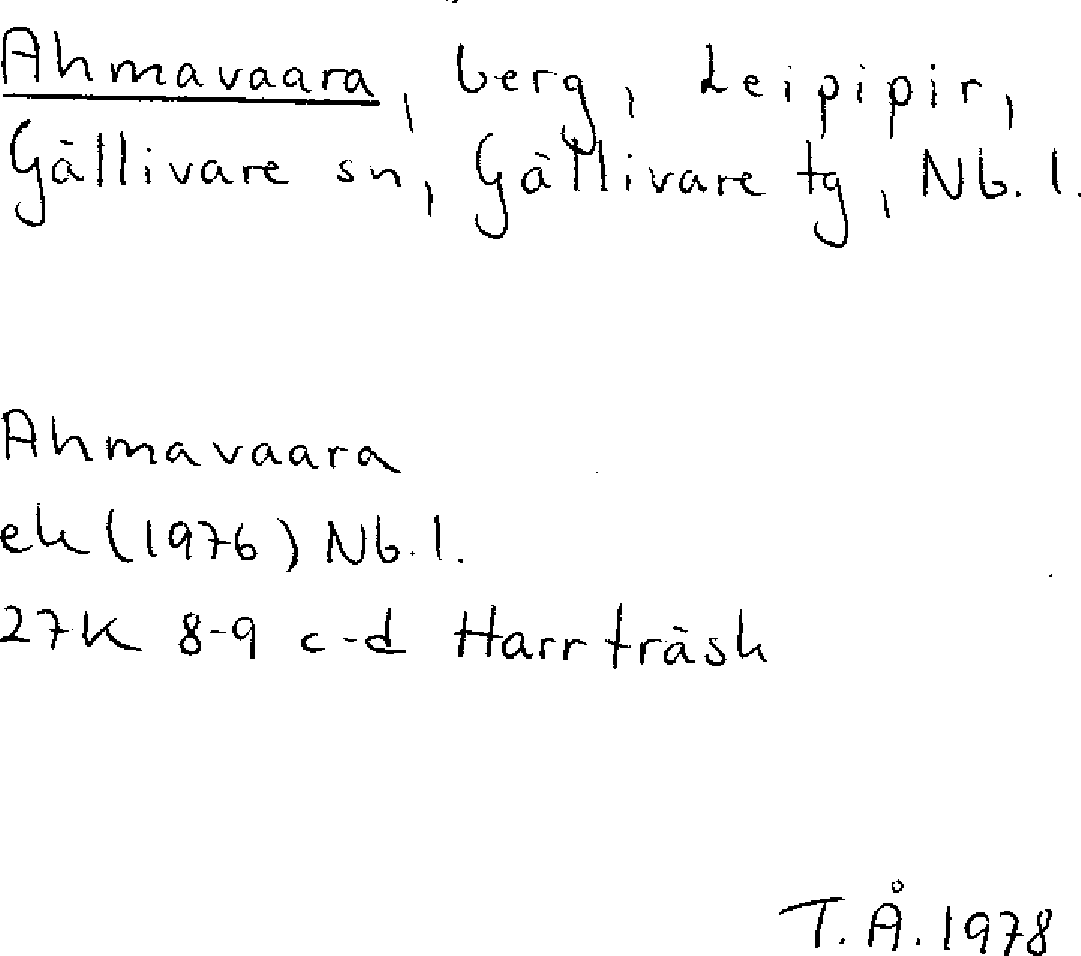 Ahmavaara, berg, Leipipir,
Gällivare sn, Gällivare tg, Nb.l.
Ahmavaara
ek (1976) Nb.l.
27K 8-9 c-d Harrträsk
T.Å.1978